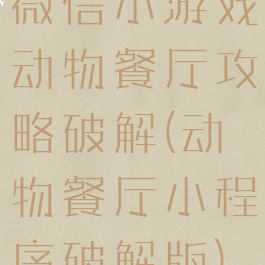 微信小游戏
动物餐厅攻
略破解(动
物餐厅小程
序破解版)